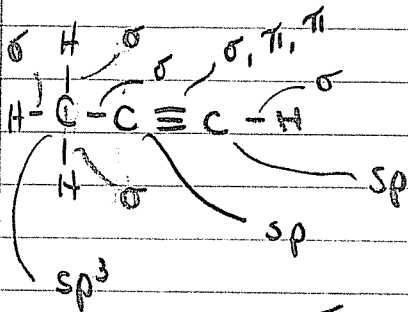 σ H σ
σ σ, π, π
H - C - C ≡ C - H σ
H σ sp
sp
sp³